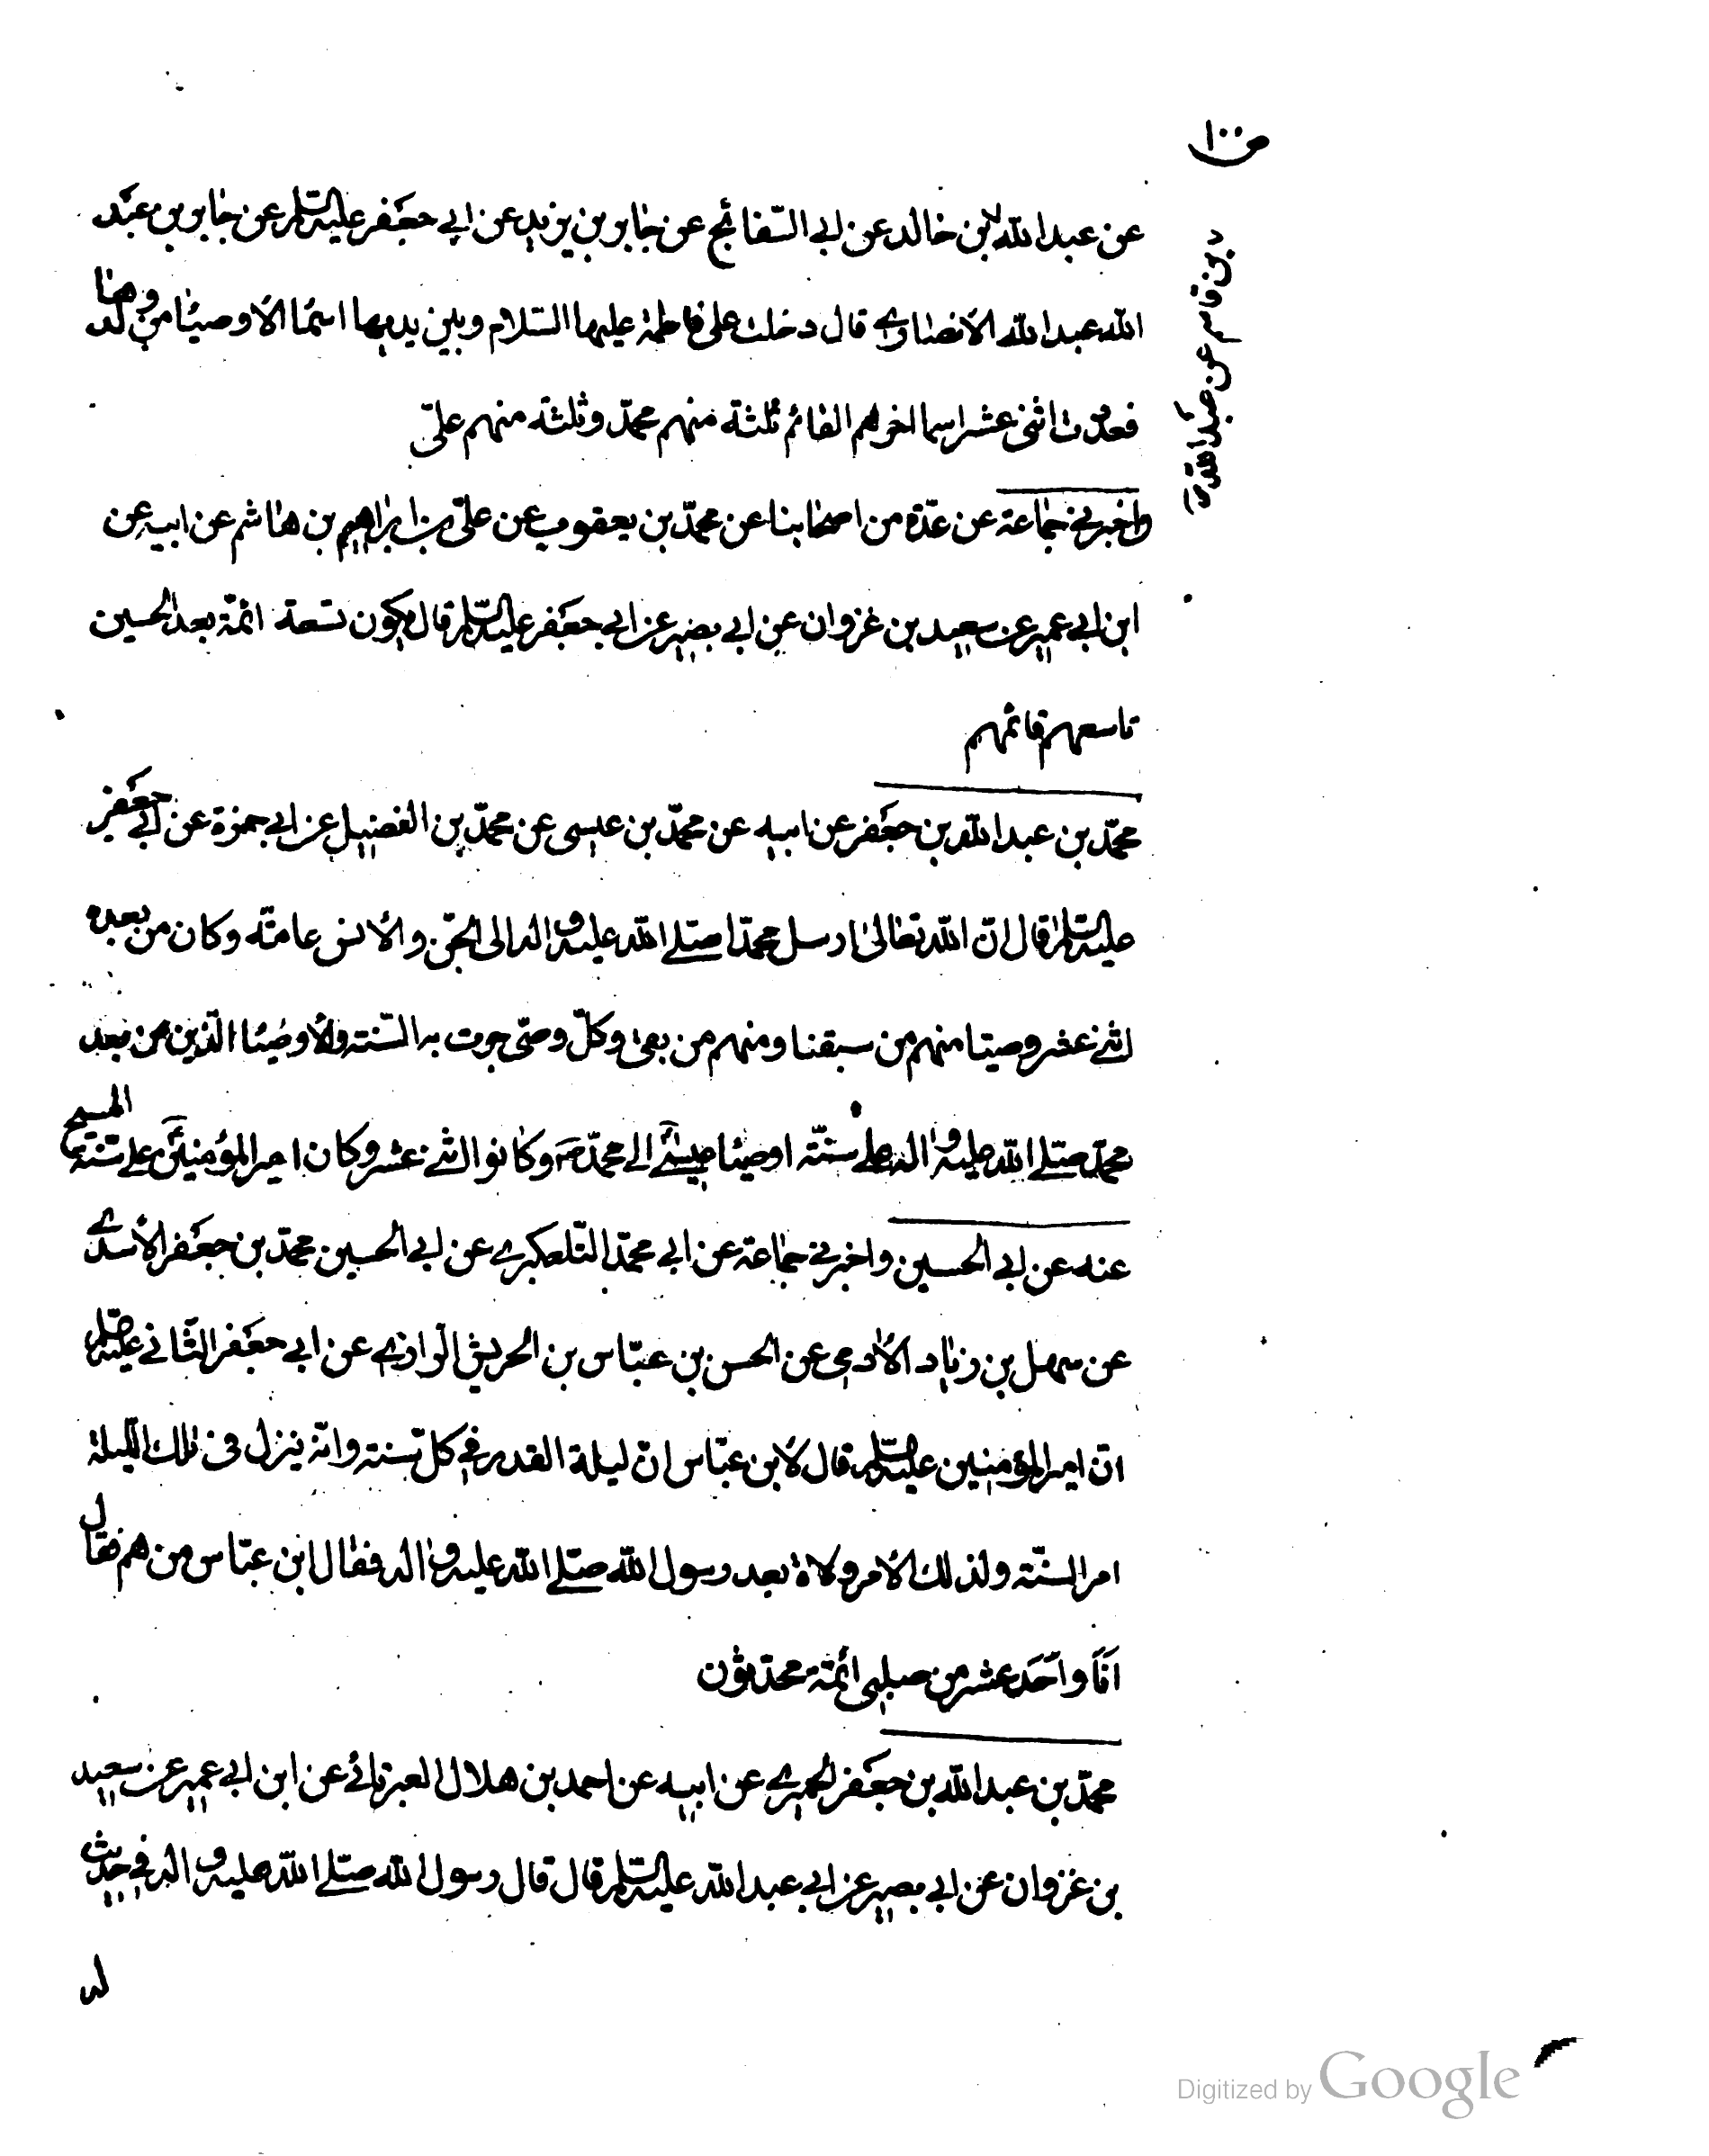 ص ١٠٠
عن عبد الله بن خالد عن ابي السفاتج عن جابر بن يزيد عن ابي جعفر عليه السلم عن جابر بن عبد
الله عبد الله الأنصاري قال دخلت على فاطمة عليها السلام وبين يديها اسما الأوصيا من ولدها
فعددت اثنى عشر اسما اخرهم القائم ثلثة منهم محمد وثلثة منهم على
واخبرني جماعة عن عدة من اصحابنا عن محمد بن يعقوب عن علي بن ابراهيم بن هاشم عن ابيه عن
ابن ابي عمير عن سعيد بن غزوان عن ابي بصير عن ابي جعفر عليه السلم قال يكون تسعة ائمة بعد الحسين
تاسعهم قائمهم
محمد بن عبد الله بن جعفر عن ابيه عن محمد بن عيسى عن محمد بن الفضيل عن ابي حمزة عن ابي جعفر
عليه السلم قال ان الله تعالى ارسل محمدا صلى الله عليه واله الى الجن والأنس عامة وكان من بعده
اثني عشر وصيا منهم من سبقنا ومنهم من بقى وكل وصى جرت به السنة والأوصيا الذين من بعد
محمد صلى الله عليه واله على سنة اوصيا عيسى الى محمد ص وكانوا اثني عشر وكان امير المؤمنين ع على سنة المسيح
عنه عن ابي الحسين واخبرني جماعة عن ابي محمد التلعكبري عن ابي الحسين محمد بن جعفر الأسدي
عن سهل بن زياد الأدمي عن الحسن بن عباس بن الحريش الرازي عن ابي جعفر الثاني عليه السلم
ان امير المؤمنين عليه السلم قال لأبن عباس ان ليلة القدر في كل سنة وانه ينزل في تلك الليلة
امر السنة ولذلك الأمر ولاة بعد رسول الله صلى الله عليه واله فقال ابن عباس من هم فقال
انا واحد عشر من صلبي ائمة محدثون
محمد بن عبد الله بن جعفر الحميري عن ابيه عن احمد بن هلال العبرتائي عن ابن ابي عمير عن سعيد
بن غزوان عن ابي بصير عن ابي عبد الله عليه السلم قال قال رسول الله صلى الله عليه واله في حديث
له
Digitized by Google